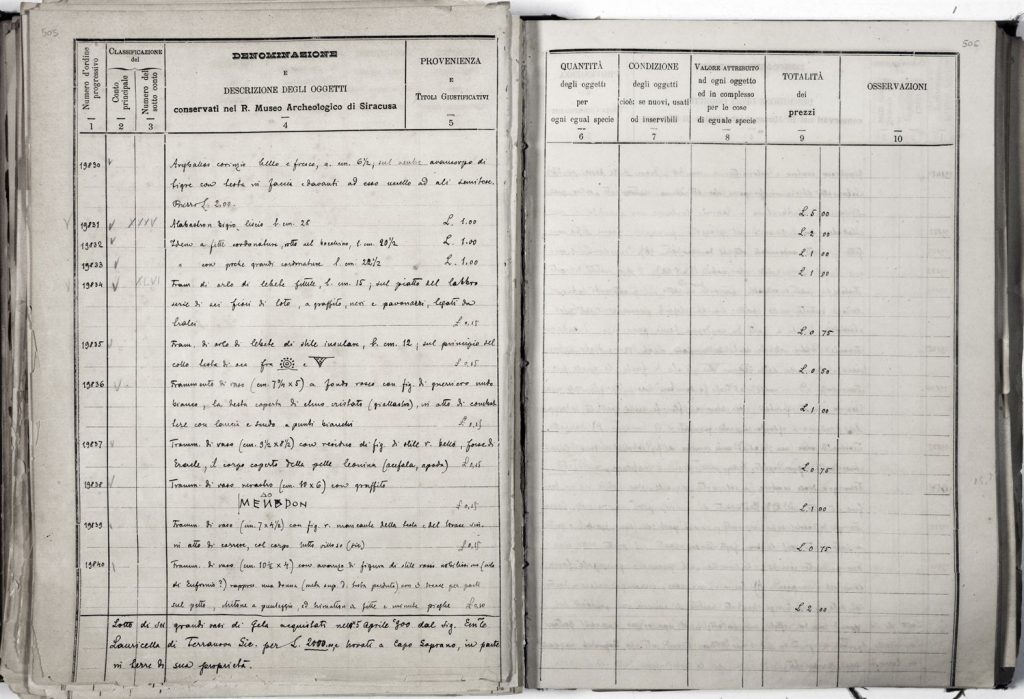 505
Numero d'ordine progressivo
CLASSIFICAZIONE del
Conto principale
Numero del sotto conto
DENOMINAZIONE
E
DESCRIZIONE DEGLI OGGETTI
conservati nel R. Museo Archeologico di Siracusa
PROVENIENZA
E
TITOLI GIUSTIFICATIVI
1 2 3 4 5
19830 Aryballos corinzio bello e fresco, a. cm. 6½, sul ventre avancorpo di
tigre con testa in faccia e davanti ad esso uccello ad ali
L. 2.00.
19831 XXXV Alabastron bigio, liscio l. cm. 28 L. 1.00
19832 Idem a fitte cordonature, rotto nel bocchino, l. cm. 20½ L. 1.00
19833 " con poche grandi cordonature l. cm. 22½ L. 1.00
19834 XLVI Fram. di orlo di lebete fittile, l. cm. 15; sul piatto del labbro
serie di sei fiori di loto, a graffito, neri e paonazzi, legati da
tralci L. 0,15
19835 Fram. di orlo di lebete di stile insulare, l. cm. 12; sul principio del
collo testa di oca fra e L. 0.15
19836 Frammento di vaso (cm. 7¾ x 5) a fondo rosso con fig. di guerriero nudo
bianco, la testa coperta di elmo crestato (giallastro), in atto di combat
tere con lancia e scudo a punti bianchi L. 0.15
19837 Framm. di vaso (cm. 9½ x 8½) con residuo di fig. di stile r. bello, forse di
Eracle, il corpo coperto della pelle leonina (acefala, apoda) L. 0,15
19838 Framm. di vaso nerastro (cm. 10 x 6) con graffito
L. 0.15
19839 Framm. di vaso (cm. 7 x 4½) con fig. r. mancante della testa e del
in atto di correre, col corpo tutto villoso (sic) L. 0,15
19840 Framm. di vaso (cm. 10½ x 4) con avanzo di figura di stile rosso nobilissimo (stile
di Eufronio?) rappres. una donna (metà sup. di testa perduta) con 3 trecce per parte
sul petto, chitone a punteggio, ed himation a fitte e minute pieghe L. 0.50
Lotto di sei grandi vasi di Gela acquistati nel 15 Aprile 900 dal Sig. Emle
Lauricella di Terranova Sic. per L. 2000, trovati a Capo Soprano, in parte
in terre di sua proprietà.
506
QUANTITÀ
degli oggetti
per
ogni egual specie
CONDIZIONE
degli oggetti
cioè: se nuovi, usati
od inservibili
VALORE ATTRIBUITO
ad ogni oggetto
ed in complesso
per le cose
di eguale specie
TOTALITÀ
dei
prezzi
OSSERVAZIONI
6 7 8 9 10
L. 5 00
L. 2 00
L. 1 00
L. 1 00
L. 0 75
L. 0 50
L. 1 00
L. 0 75
L. 1 00
L. 0 75
L. 2 00